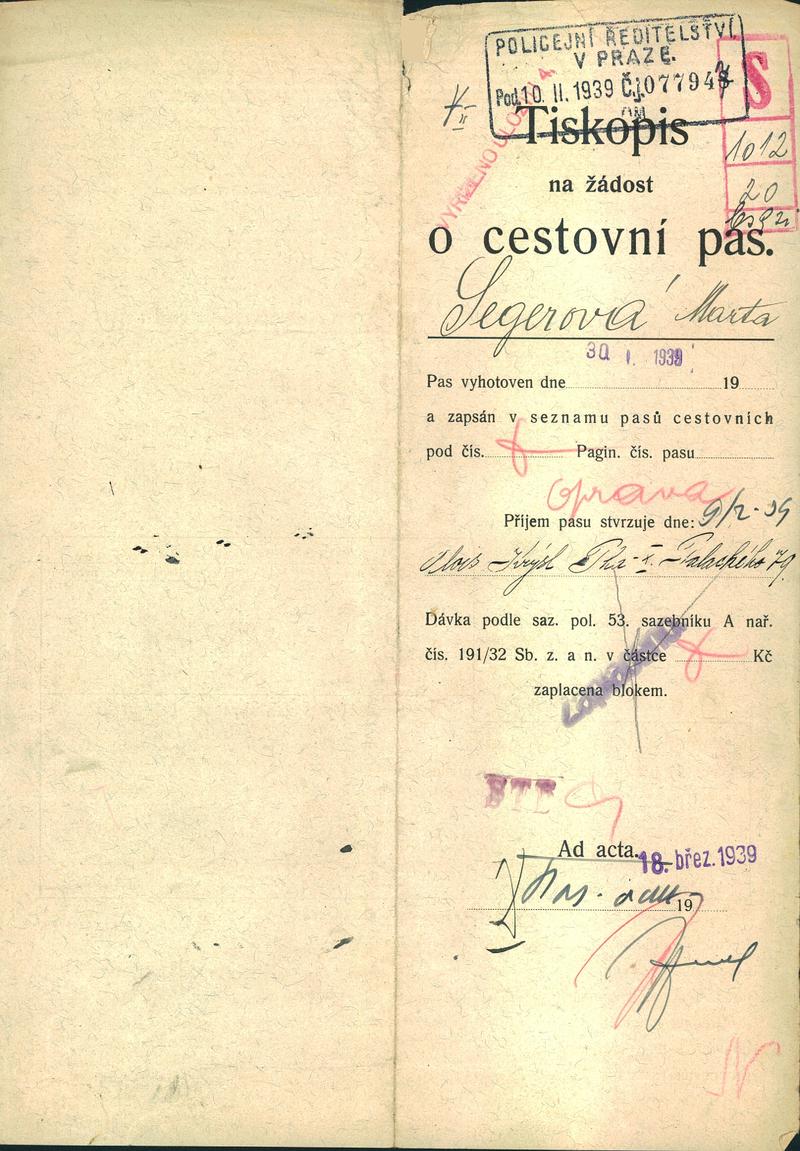 POLICEJNÍ ŘEDITELSTVÍ
V PRAZE.
Pod. 10. II. 1939 Č.j. 077943
S
1012
20
Tiskopis
na žádost
o cestovní pas.
VYŘÍZENO ULOŽ
Segerová Marta
30 I. 1939
Pas vyhotoven dne 19
a zapsán v seznamu pasů cestovních
pod čís. Pagin. čís. pasu
oprava
Příjem pasu stvrzuje dne: 9/2-39
Alois Krýsl Pha X. Palackého 79
Dávka podle saz. pol. 53. sazebníku A nař.
čís. 191/32 Sb. z. a n. v částce Kč
zaplacena blokem.
Ad acta. 18. břez. 1939
19